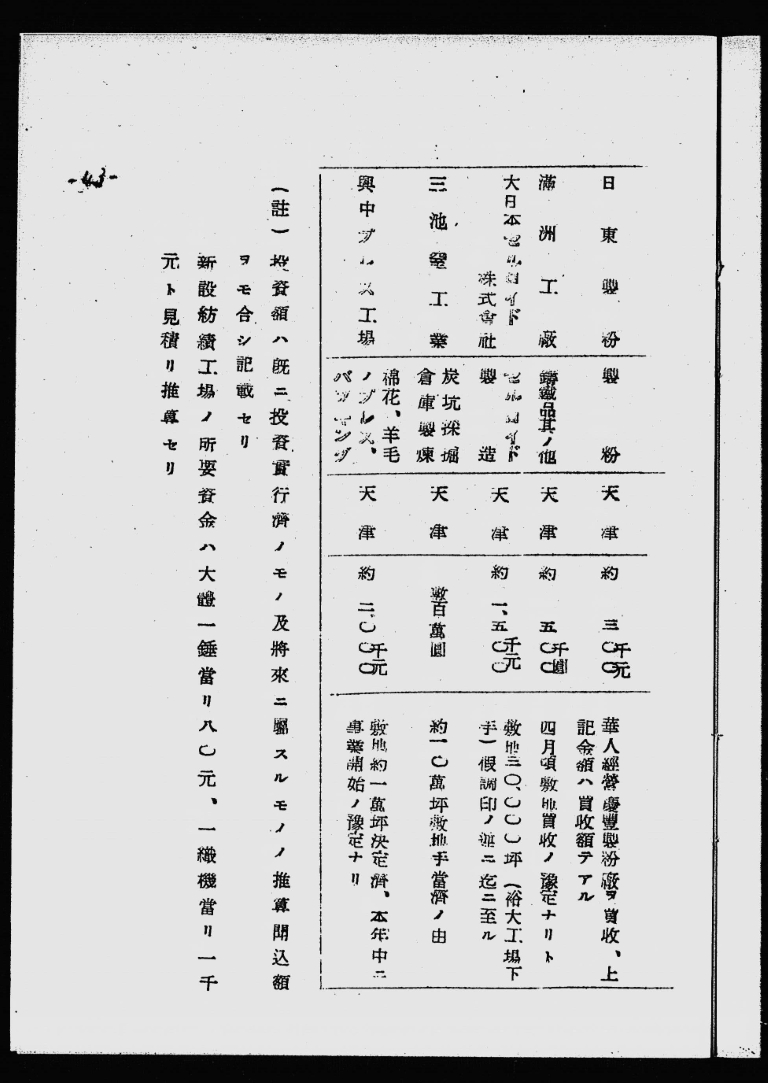 日東製粉
製粉
天津
約三〇〇千元
華人經營慶豐製粉廠ヲ買收、上
記金額ハ買收額テアル
滿洲工廠
鑄鐵品其ノ他
天津
約五〇〇千圓
四月頃敷地買收ノ豫定ナリト
大日本セルロイド
株式會社
セルロイド
製造
天津
約一、五〇〇千元
敷地三〇、〇〇〇坪(裕大工場下
手)假調印ノ運ニ迄ニ至ル
三池窒工業
炭坑採堀
倉庫製煉
天津
數百萬圓
約一〇萬坪敷地手當濟ノ由
興中プレス工場
棉花、羊毛
ノプレス、
パツキング
天津
約二、〇〇〇千元
敷地約一萬坪決定濟、本年中ニ
事業開始ノ豫定ナリ
(註)投資額ハ既ニ投資實行濟ノモノ及將來ニ屬スルモノノ推算聞込額
ヲモ合シ記載セリ
新設紡績工場ノ所要資金ハ大體一錘當リ八〇元、一織機當リ一千
元ト見積リ推算セリ
-43-